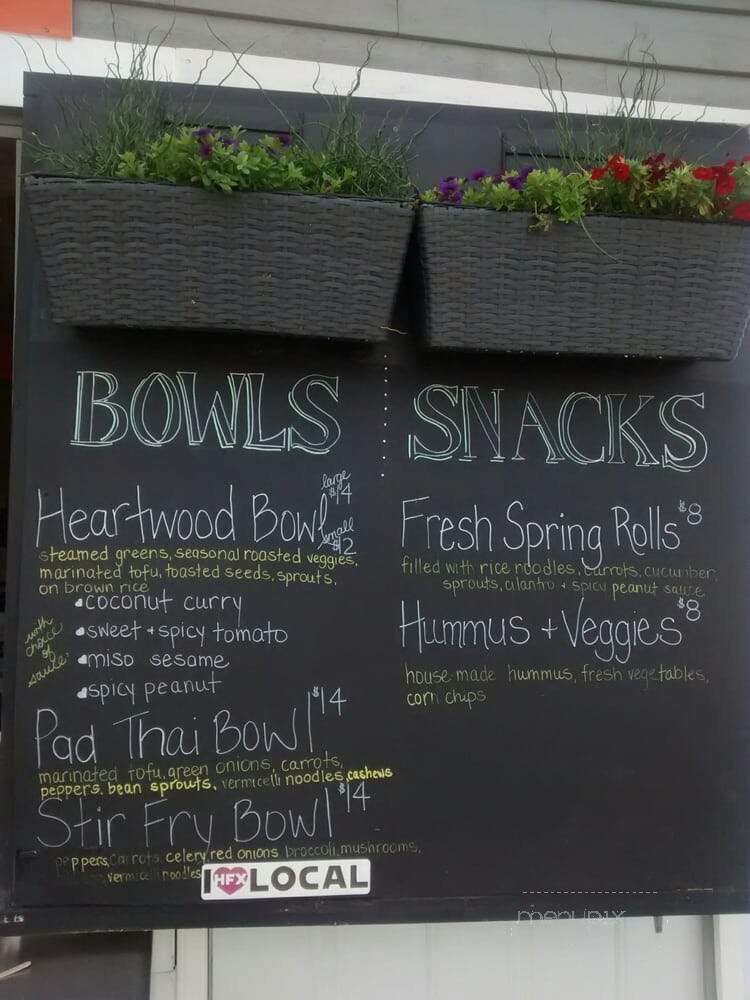 BOWLS
Heartwood Bowl large $14
small $12
steamed greens, seasonal roasted veggies,
marinated tofu, toasted seeds, sprouts,
on brown rice
with choice of sauce:
•coconut curry
•sweet + spicy tomato
•miso sesame
•spicy peanut
Pad Thai Bowl $14
marinated tofu, green onions, carrots,
peppers, bean sprouts, vermicelli noodles, cashews
Stir Fry Bowl $14
peppers, carrots, celery, red onions, broccoli, mushrooms,
vermicelli noodles
SNACKS
Fresh Spring Rolls $8
filled with rice noodles, carrots, cucumber,
sprouts, cilantro + spicy peanut sauce
Hummus + Veggies $8
house made hummus, fresh vegetables,
corn chips
I HFX LOCAL
menupix